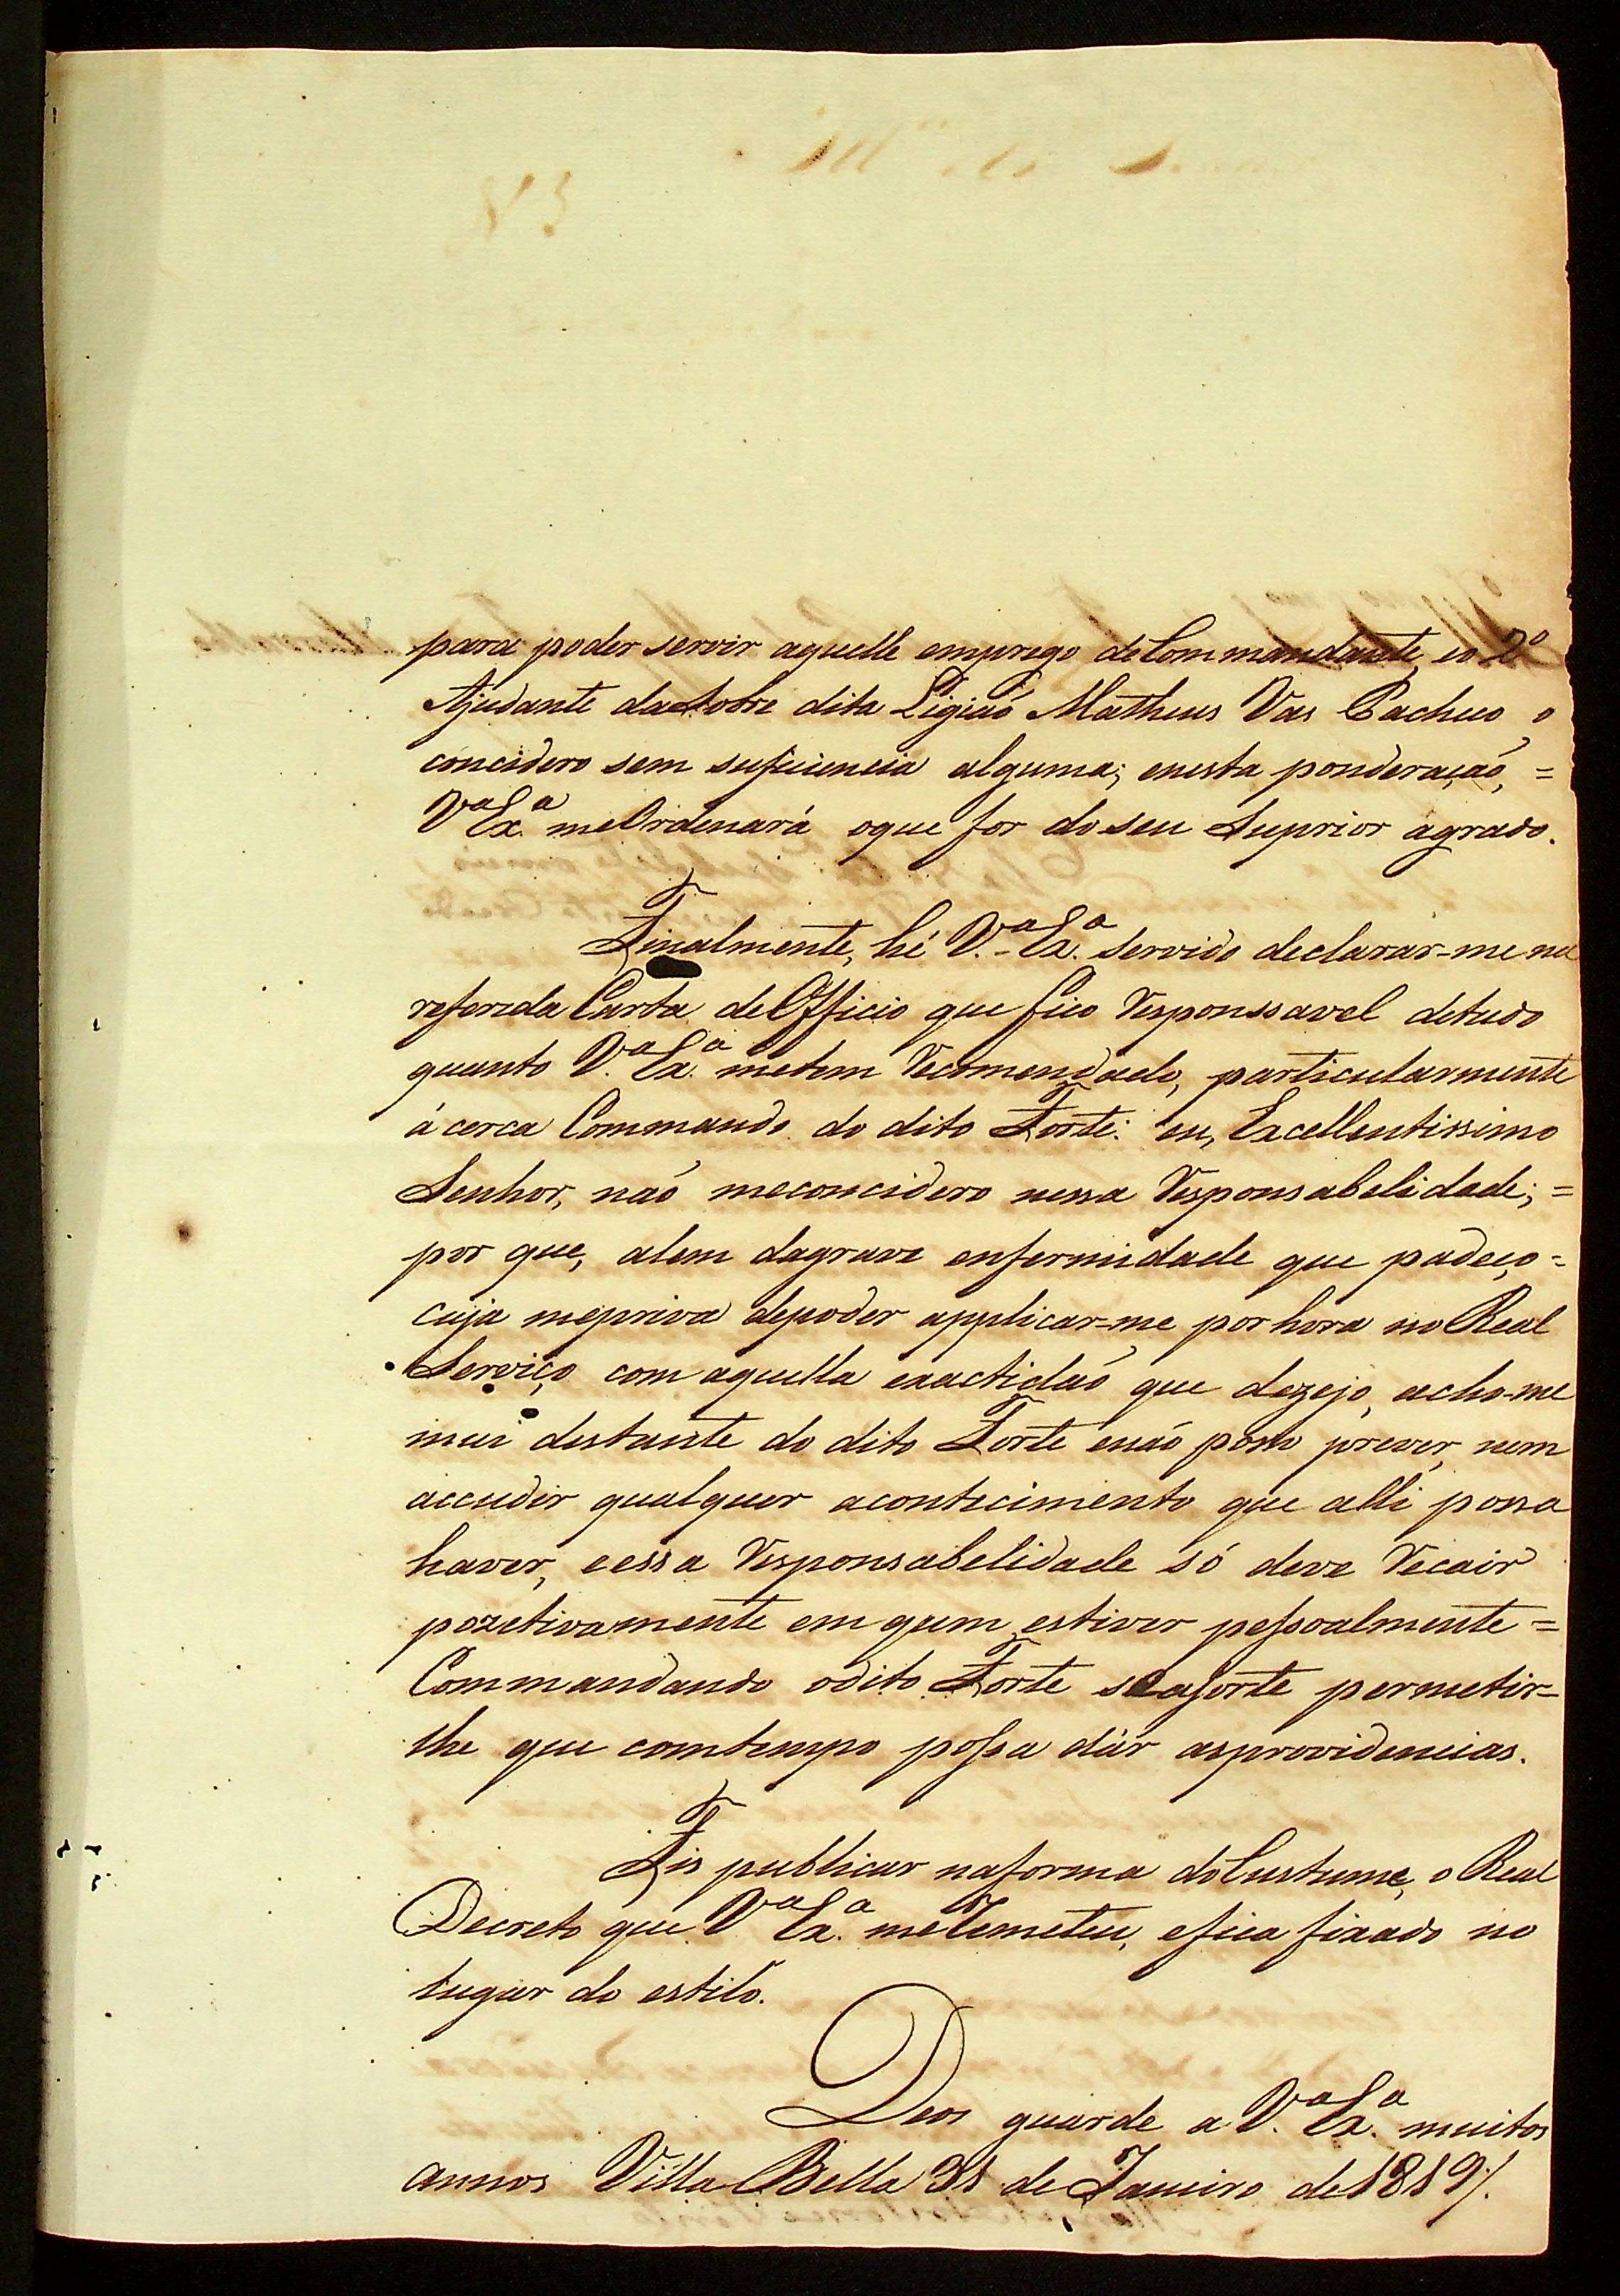 para poder servir aquelle emprego deCommandante, eo 2º
Ajudante dasobre dita Ligiaó Matheus Vas Pacheco, o
concidero sem suficiencia alguma; enesta ponderaçaó, =
VªExª meOrdenará oque for doseu Suprior agrado.
Finalmente, hé V.ªExª servido declarar-me na
referida Carta deOfficio que fico Responssavel detudo
quanto V.ªExª metem Recomendado, particularmente
ácerca Commando do dito Forte: eu, Excellentissimo
Senhor, naó meconcidero nessa Responsabelidade; =
por que, alem dagrave enfermidade que padeço =
cuja mepriva depoder applicar-me porhora noReal
Serviço com aquella exactidaó que dezejo, acho-me
mui distante do dito Forte enaó posso prever, nem
accudir qualquer acontecimento que alli possa
haver, eessa Responsabelidade só deve Recair
pozetivamente emquem estiver pessoalmente =
Commandando odito Forte seasorte permetir=
lhe que comtempo possa dár asprovidencias.
Fis publicar naforma doCustume, o Real
Decreto que VªExª meRemeteu, efica fixado no
lugar do estilo.
Deos guarde a V.ªExª muitos
annos Villa Bella 31 de Janeiro de1819/.